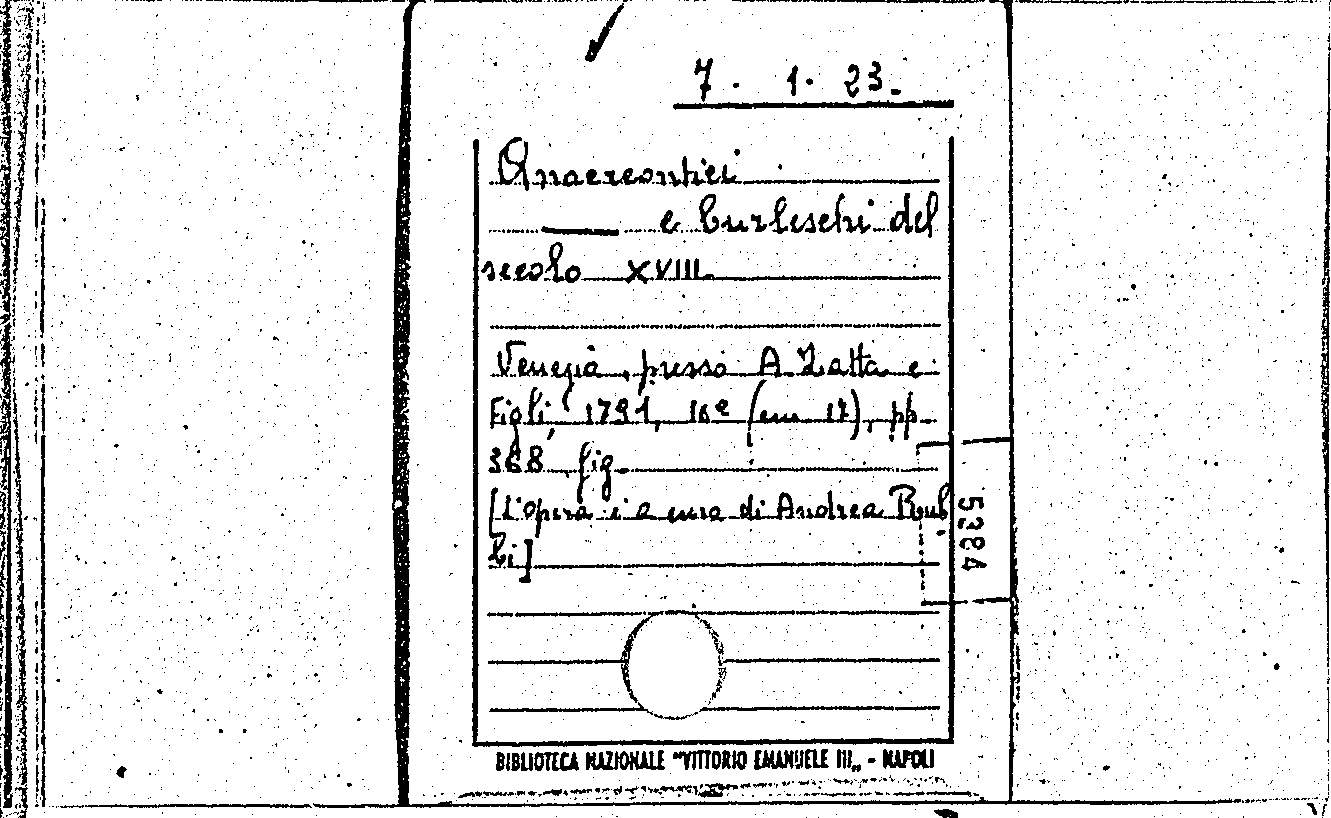 7. 1. 23.
Anacreontici
e burleschi del
secolo XVIII.
Venezia, presso A. Zatta e
Figli, 1791, 16º (cm 17), pp.
368 fig.
[L'opera è a cura di Andrea Rub
bi]
5384
BIBLIOTECA NAZIONALE "VITTORIO EMANUELE III„ - NAPOLI